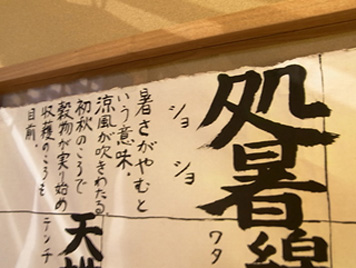 処暑
ショショ
暑さがやむと
いう意味。
涼風が吹きわたる
初秋のころで
穀物が実り始め
収穫のころも
目前。
綿
ワタ
天
テンチ